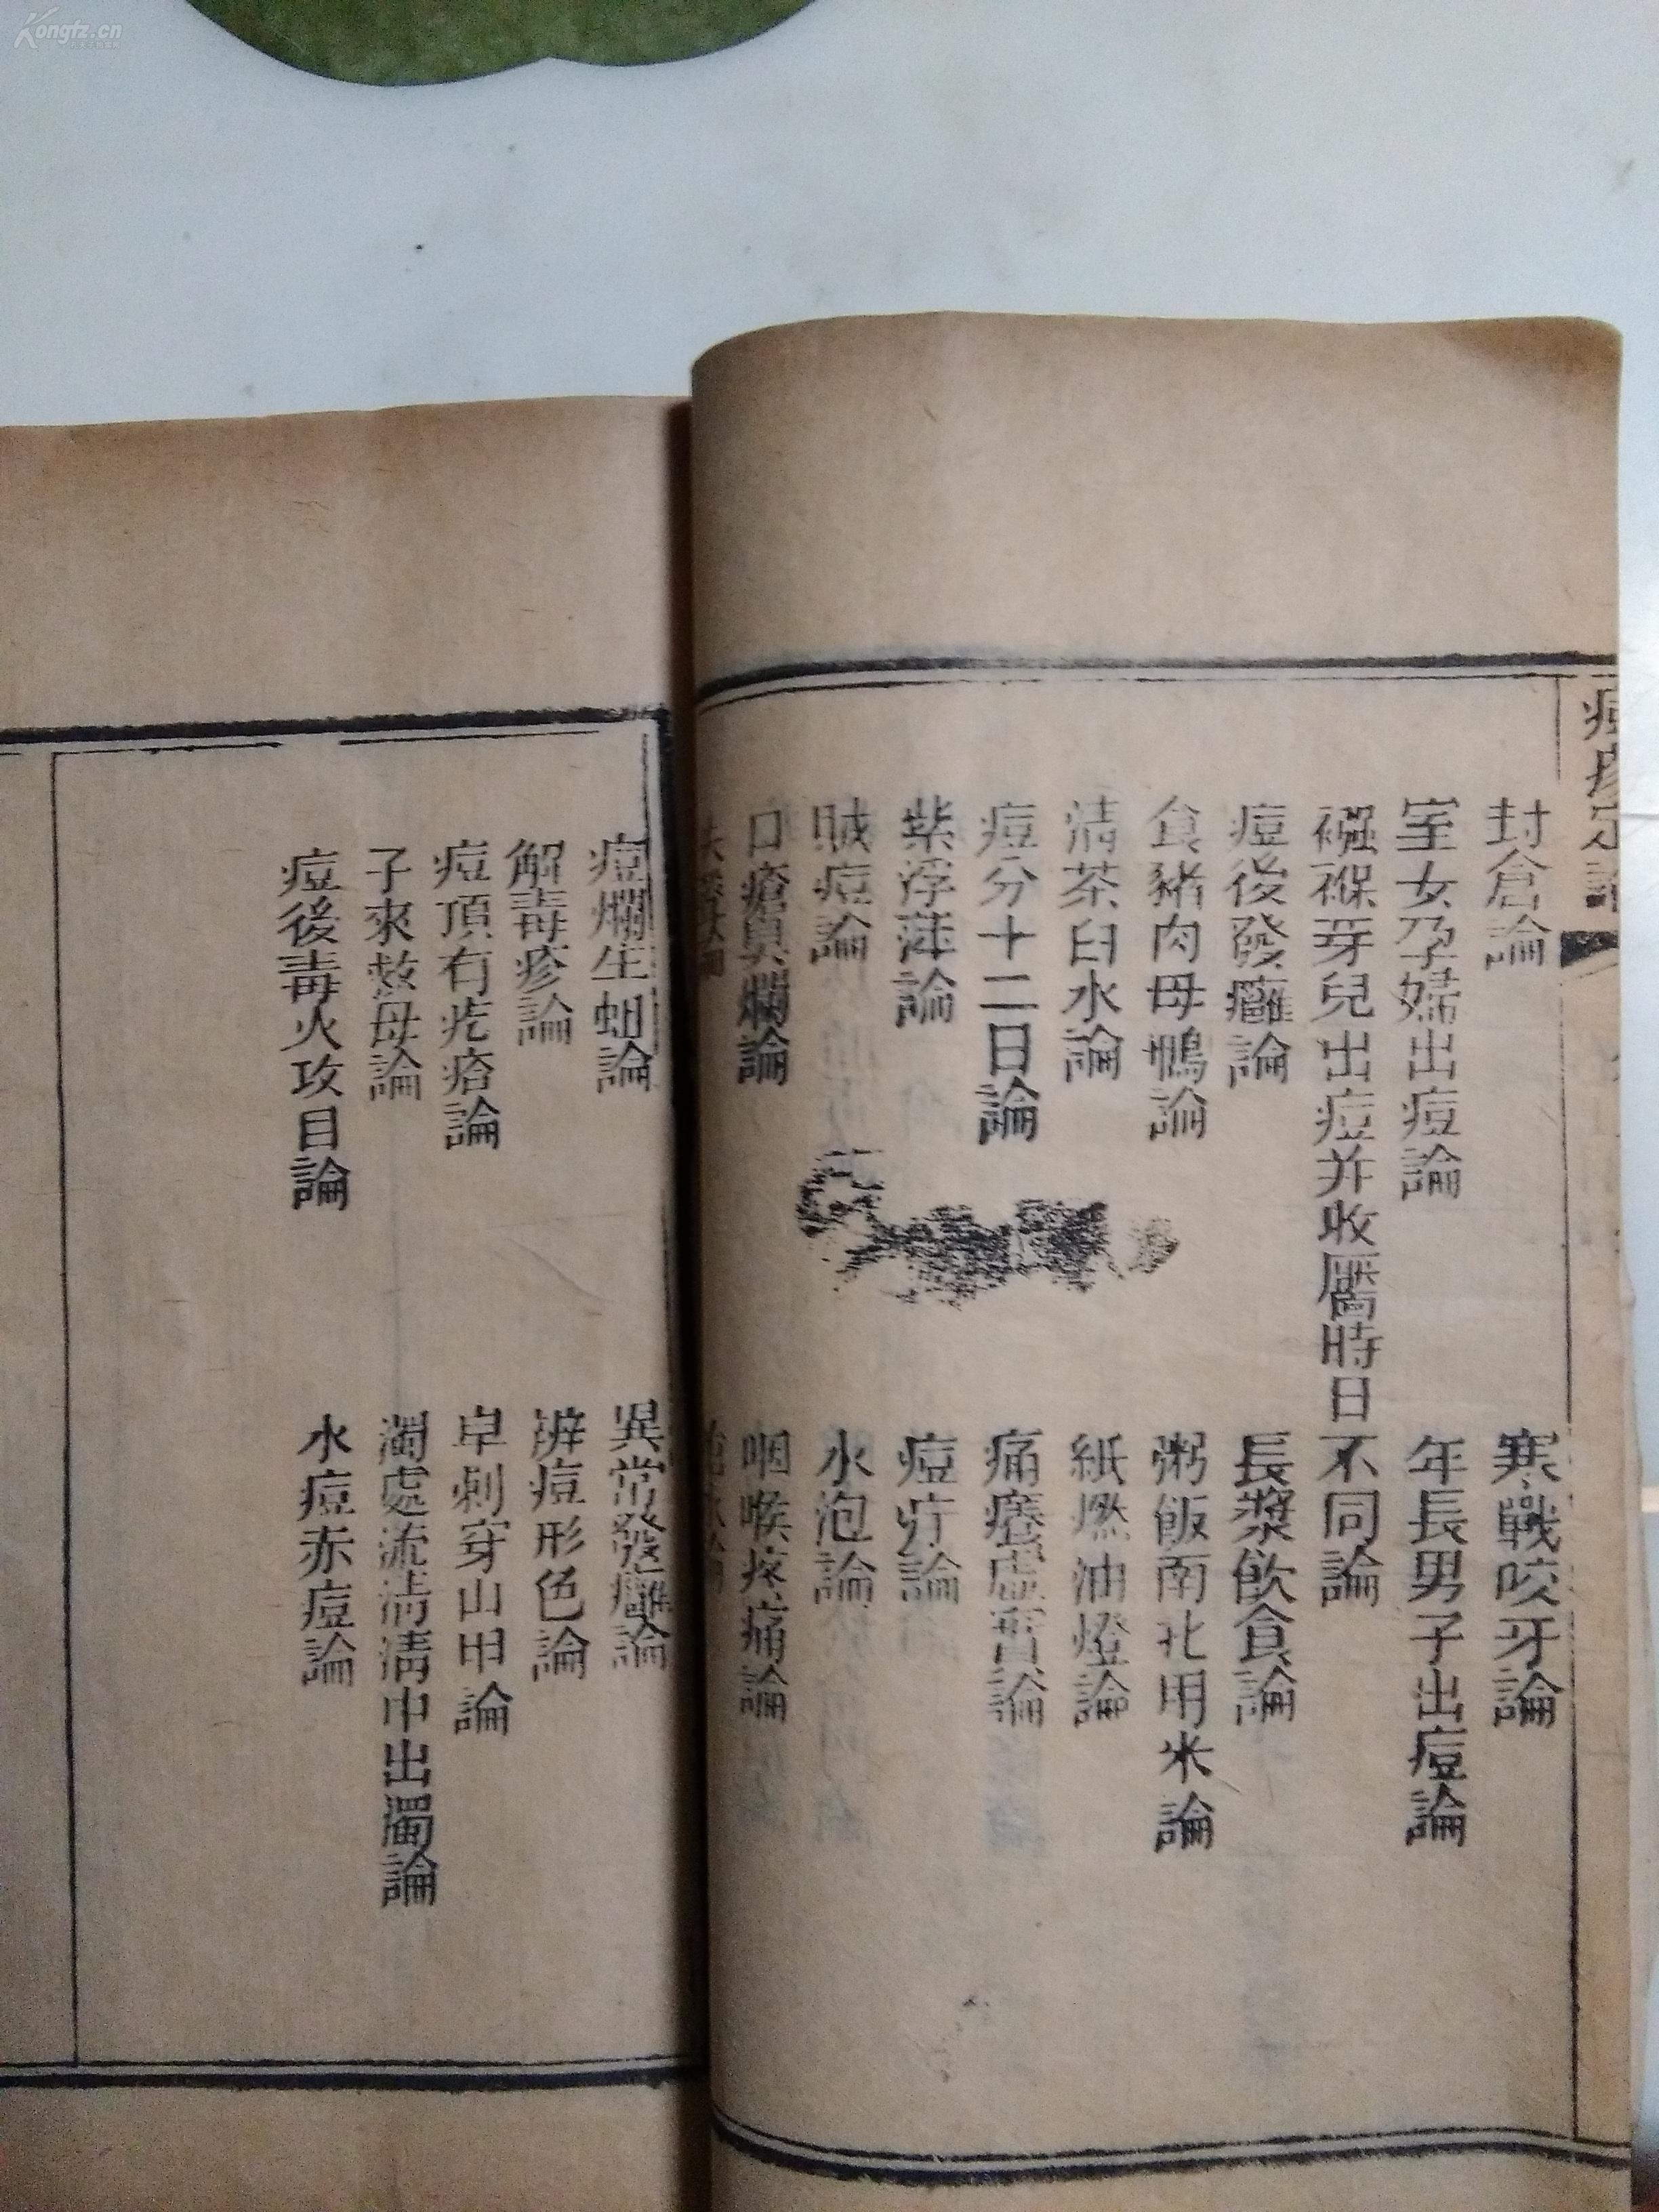 Kongfz.cn
痘疹定論
封倉論
寒戰咬牙論
室女孕婦出痘論
年長男子出痘論
襁褓芽兒出痘并收靨時日不同論
痘後發癰論
長漿飲食論
食豬肉母鴨論
粥飯南北用米論
清茶白水論
紙撚油燈論
痘分十二日論
痛癢虛實論
紫浮萍論
痘疔論
賊痘論
水泡論
口瘡臭爛論
咽喉疼痛論
痘爛生蛆論
異常發癰論
解毒疹論
辨痘形色論
痘頂有疙瘩論
皂刺穿山甲論
子來救母論
濁處流清清中出濁論
痘後毒火攻目論
水痘赤痘論